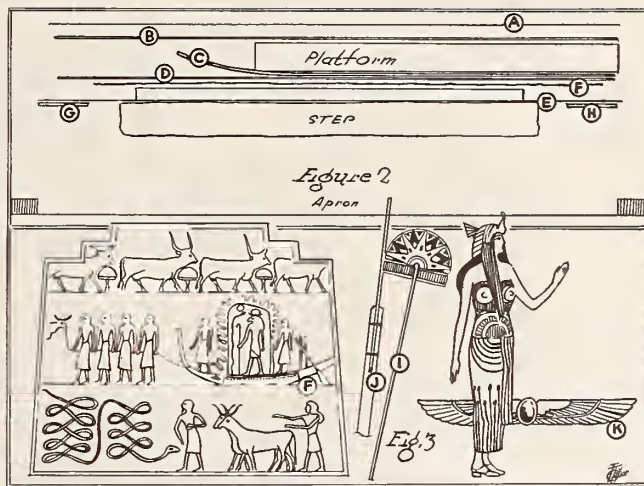 A
B
C
Platform
D
F
E
G
H
STEP
Figure 2
Apron
F
J
I
Fig. 3
K